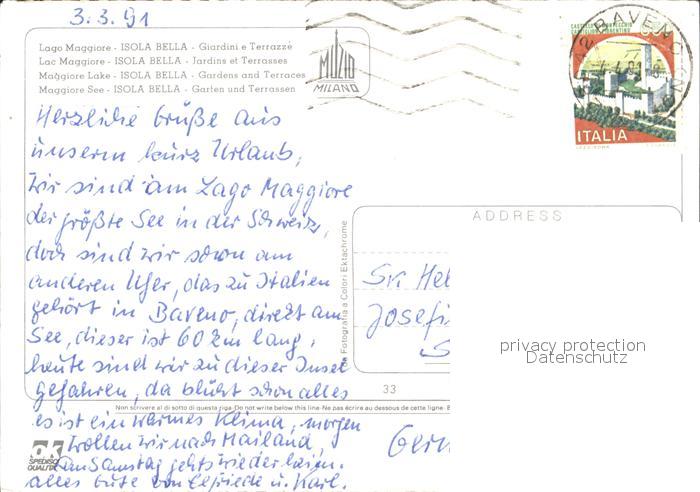 3.3.91
Lago Maggiore - ISOLA BELLA - Giardini e Terrazze
Lac Maggiore - ISOLA BELLA - Jardins et Terrasses
Maggiore Lake - ISOLA BELLA - Gardens and Terraces
Maggiore See - ISOLA BELLA - Garten und Terrassen
MUZIO
MILANO
ITALIA
Herzliche Grüße aus
unserm kurz Urlaub,
Wir sind am Lago Maggiore
der größte See in der Schweiz,
doch sind wir schon am
anderen Ufer, das zu Italien
gehört in Baveno, direkt am
See, dieser ist 60 km lang,
heute sind wir zu dieser Insel
gefahren, da blüht schon alles
es ist ein warmes Klima, morgen
wollen wir nach Mailand,
am Samstag gehts wieder heim.
alles Gute von Elfriede u. Karl.
Fotografia a Colori Ektachrome
ADDRESS
Josefi
privacy protection
Datenschutz
33
Non scrivere al di sotto di questa riga - Do not write below this line - Ne pas écrire au dessous de cette ligne -
Germ
ak